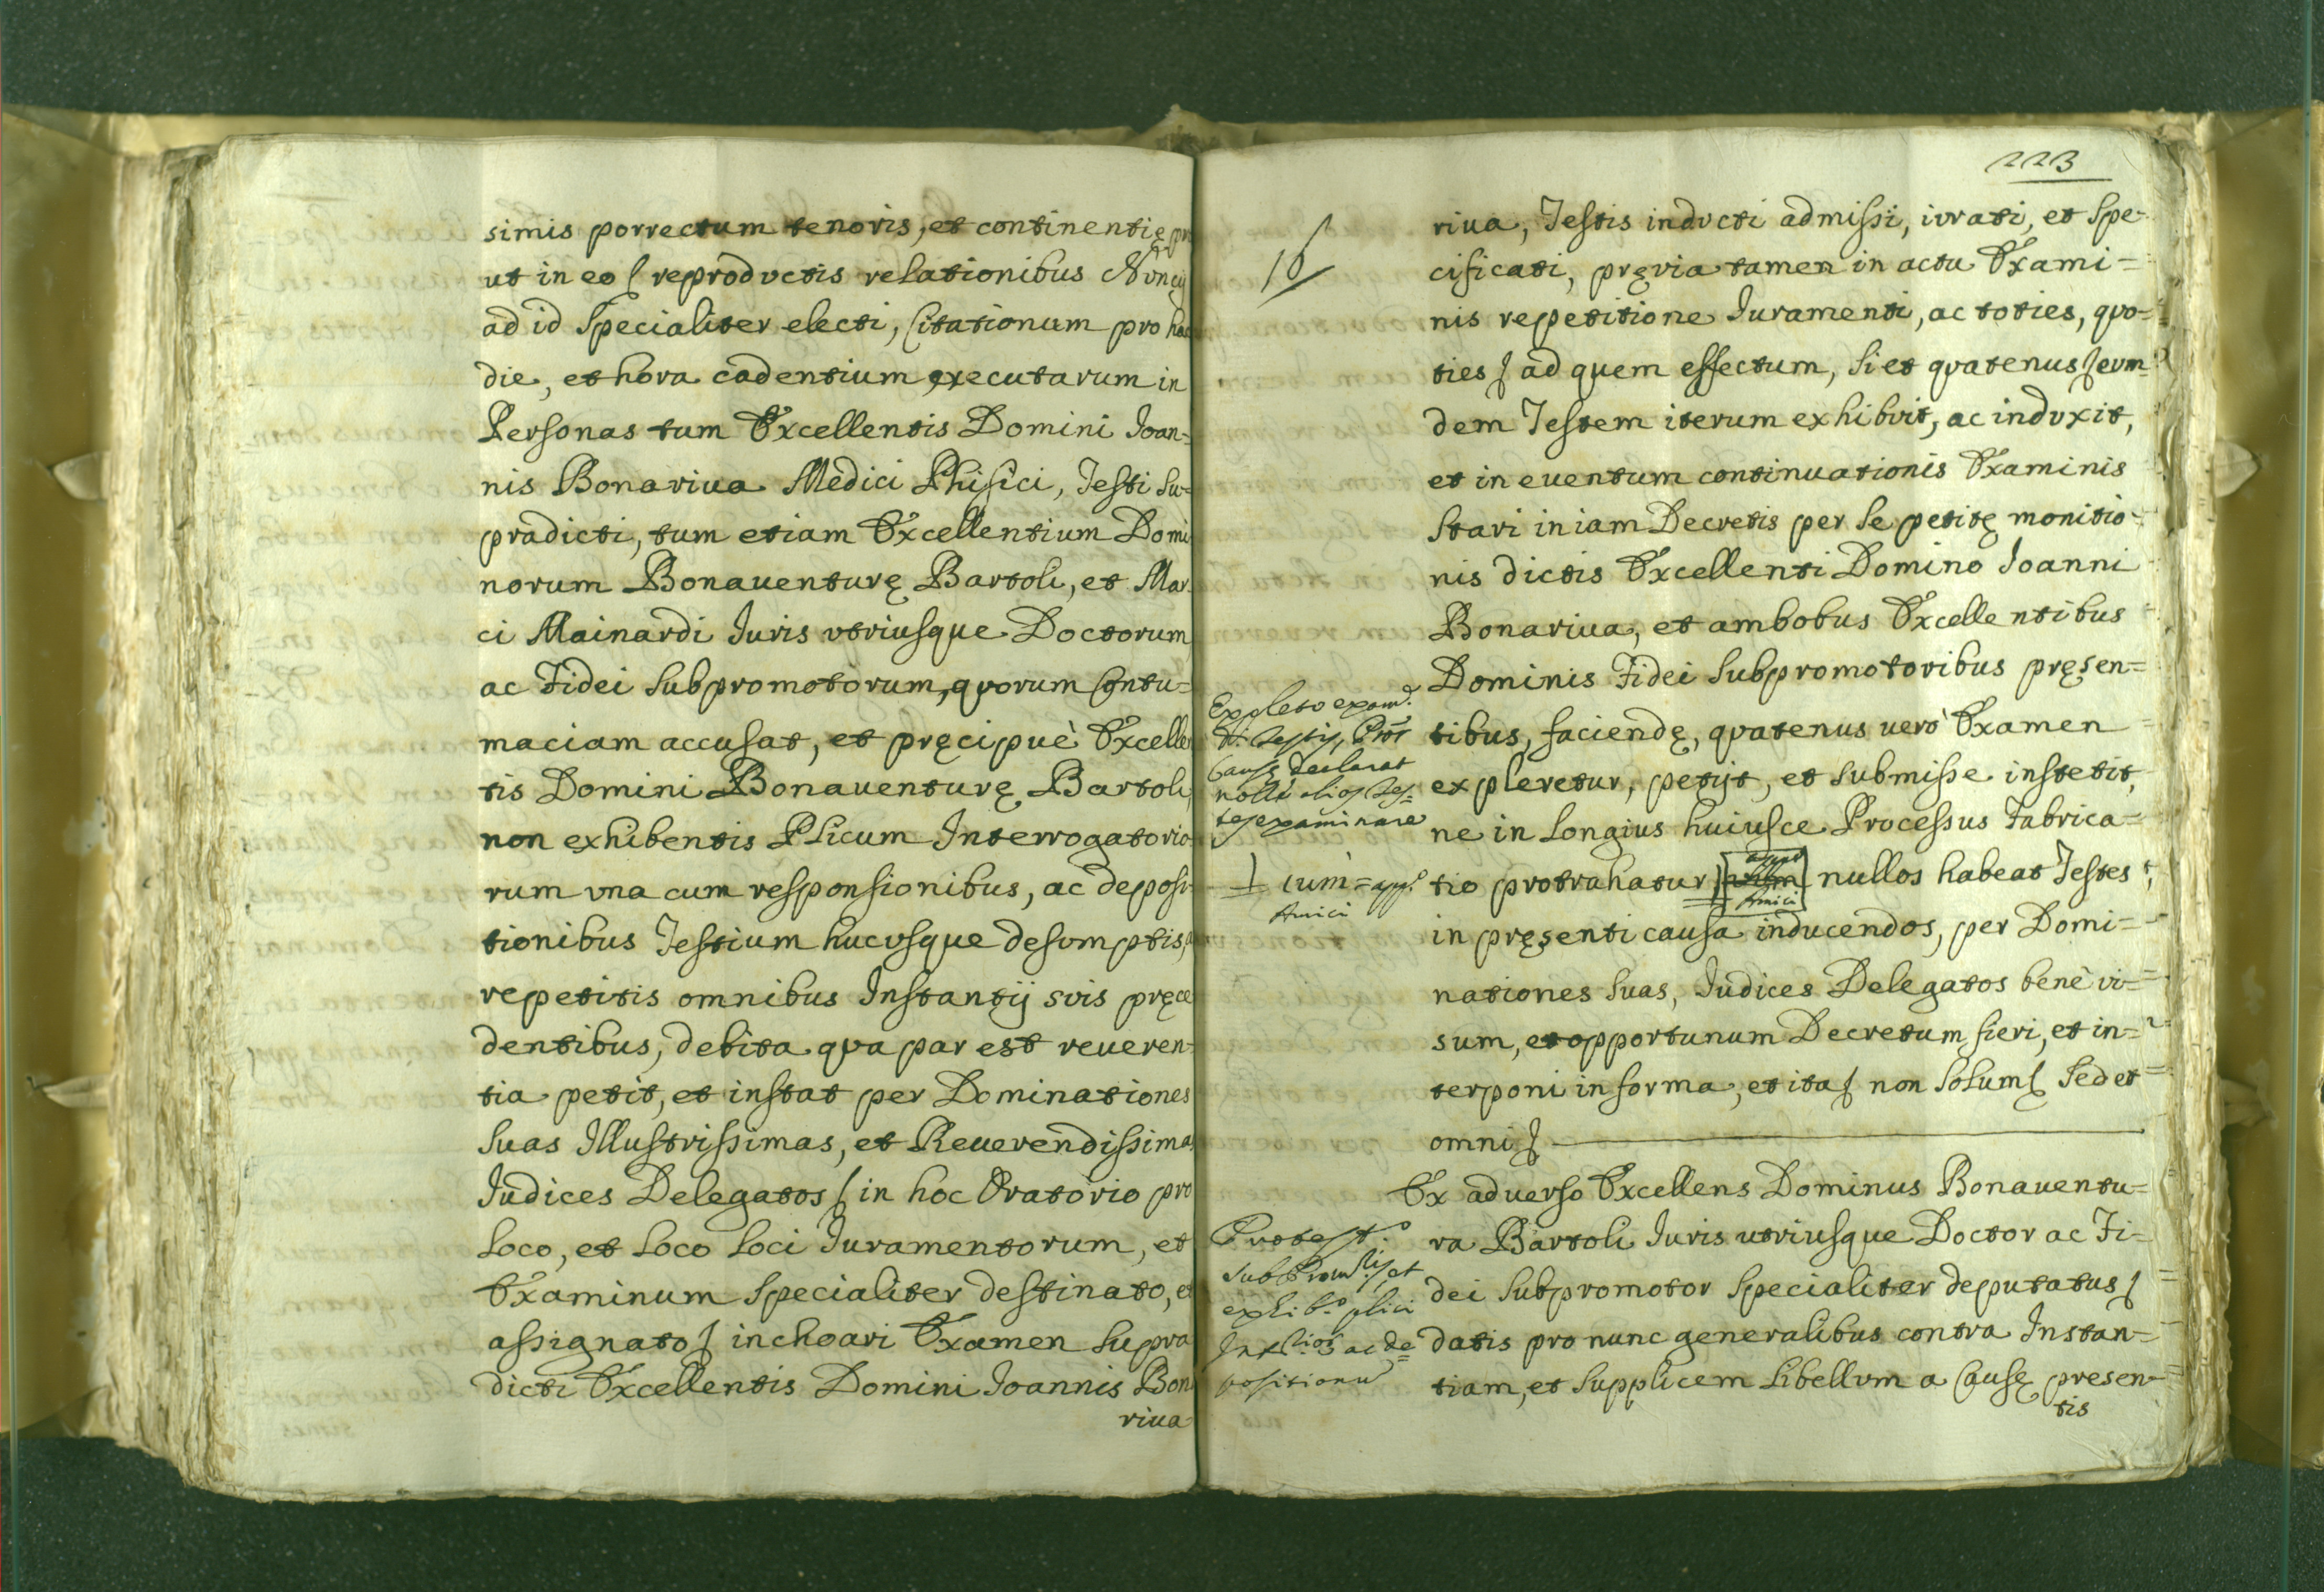 simis porrectum tenoris, et continentię pro
ut in eo ſ reproductis relationibus Nuncij
ad id Specialiter electi, Citationum pro hac
die, et hora cadentium executarum in
Personas tum Excellentis Domini Ioan=
nis Bonariua Medici Phisici, Testi Su=
pradicti, tum etiam Excellentium Domi
norum Bonauenturę Bartoli, et Mar
ci Mainardi Iuris vtriusque Doctorum
ac Fidei Subpromotorum, quorum Contu=
maciam accusat, et pręcipuè Excellen
tis Domini Bonauenturę Bartoli,
non exhibentis Plicum Interrogatorio
rum vna cum responsionibus, ac deposi
tionibus Testium hucusque desumptis,
repetitis omnibus Instantijs suis pręce
dentibus, debita qua par est reueren
tia petit, et instat per Dominationes
Suas Illustrissimas, et Reuerendissimas
Iudices Delegatos ſ in hoc Oratorio pro
Loco, et Loco Loci Iuramentorum, et
Examinum Specialiter destinato, et
assignato ſ inchoari Examen Supra
dicti Excellentis Domini Ioannis Bona
riua
223
16
riua, Testis inducti admissi, iurati, et Spe-
cificati, pręvia tamen in actu Exami=
nis repetitione Iuramenti, ac toties, quo=
ties ſ ad quem effectum, Si et quatenus ſ eum=
dem Testem iterum exhibuit, ac induxit,
et in euentum continuationis Examinis
Stari in iam Decretis per Se petitę monitio=
nis dictis Excellenti Domino Ioanni
Bonariua, et ambobus Excellentibus
Dominis Fidei Subpromotoribus pręsen=
tibus, faciendę, quatenus uerò Examen
expleretur, petijt, et Submisse instetit,
ne in Longius huiusce Processus Fabrica=
tio protrahatur, nullos habeat Testes
in pręsenti causa inducendos, per Domi=
nationes Suas, Iudices Delegatos benè vi=
sum, et opportunum Decretum fieri, et in=
terponi in forma, et ita ſ non Solum ſ Sed et
omni ſ
Expleto exam.e
D. Testis, Pror
Causę declarat
nolle alios Tes=
tes examinare
cum = app.o
Amici
Ex aduerso Excellens Dominus Bonauentu=
ra Bartoli Iuris utriusque Doctor ac Fi=
dei Subpromotor Specialiter deputatus ſ
datis pro nunc generalibus contra Instan=
tiam, et Supplicem Libellum a Causę presen=
tis
Protest.o
SubPromris, et
exhib.o plici
ac de=
positionu